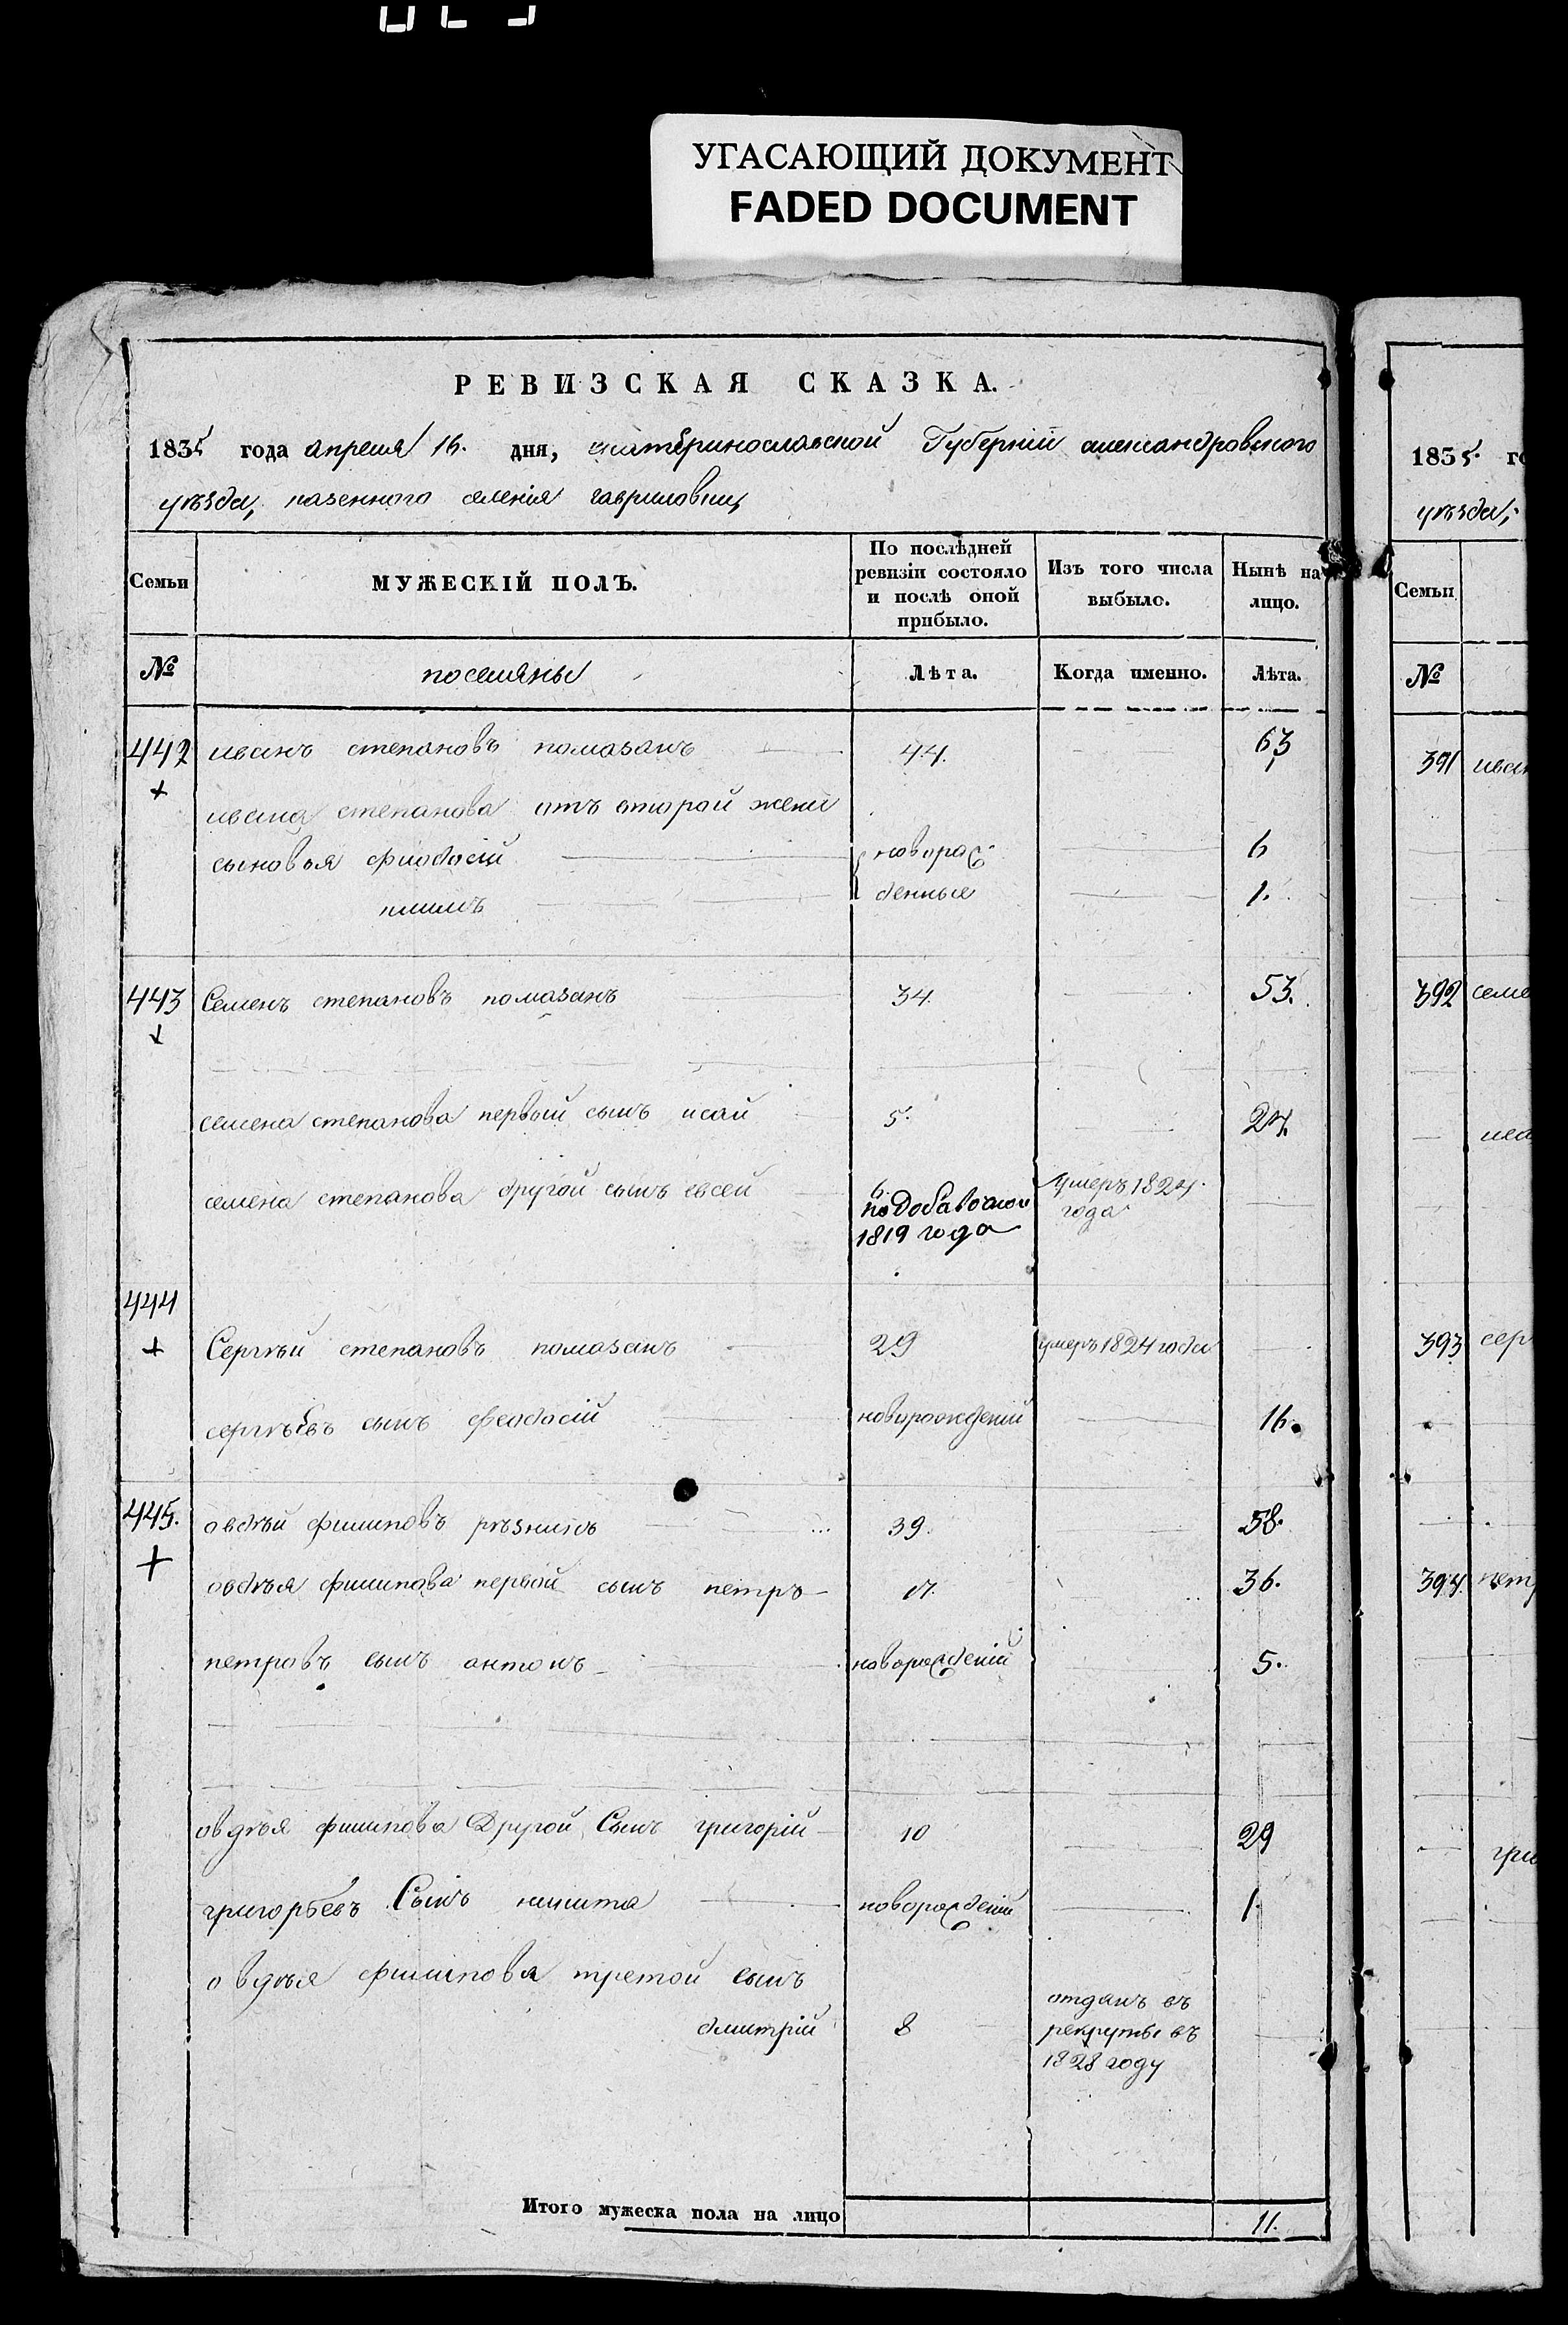 УГАСАЮЩИЙ ДОКУМЕНТ
FADED DOCUMENT
РЕВИЗСКАЯ СКАЗКА.
1835 года апреля 16. дня, екатеринославской Губерніи александровского
уѣзда, казенного селенія гавриловки,
Семьи
МУЖЕСКІЙ ПОЛЪ.
По послѣдней ревизіи состояло и послѣ оной прибыло.
Изъ того числа выбыло.
Нынѣ на лицо.
№ поселяны Лѣта. Когда именно. Лѣта.
442 иванъ степановъ помазанъ 44. 63
ивана степанова отъ второй жени
сыновья фиодосій новорас 6
климъ денные 1.
443 Семенъ степановъ помазанъ 34. 53.
семена степанова первый сынъ исай 5. 24.
семена степанова другой сынъ евсей 6. по добавочной 1819 года умеръ 1824. года
444
Сергѣй степановъ помазанъ 29 умеръ 1824 года
сергѣевъ сынъ феодосій новорожденій 16.
445. овдѣй филиповъ рѣзникъ 39. 58.
овдѣя филипова первой сынъ петръ 17. 36.
петровъ сынъ антонъ новорожденій 5.
овдѣя филипова Другой Сынъ григорій 10 29
григорьевъ Сынъ никита новорожденій 1.
овдѣя филипова третой сынъ
дмитрій 8 отданъ въ рекруты въ 1828 году
Итого мужеска пола на лицо 11.
1835. го
уѣзда,
Семьи
№
391 иван
392 семе
иса
393 серг
394. петр
гри